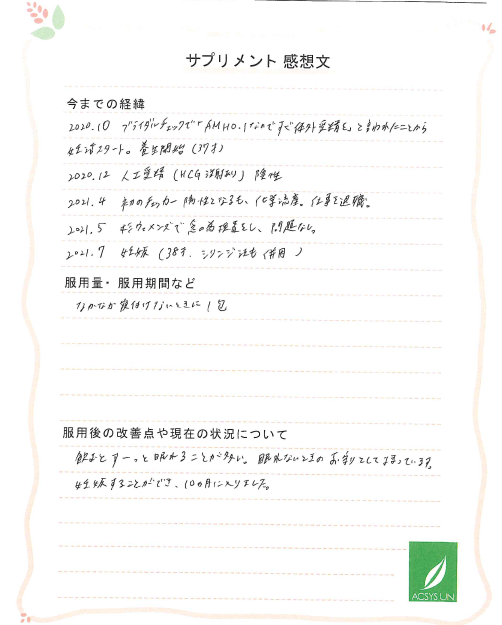 サプリメント 感想文
今までの経緯
2020.10 ブライダルチェックで AMH0.1なのですぐ体外受精を、と言われたことから
妊活スタート。養生開始 (37才)
2020.12 人工受精 (HCG注射あり) 陰性
2021.4 初のチェッカー陽性となるも、化学流産。仕事を退職。
2021.5 杉ウィメンズで念の為検査をし、問題なし。
2021.7 妊娠 (38才、シリンジ法も併用)
服用量・服用期間など
なかなか寝付けないときに1包
服用後の改善点や現在の状況について
飲むとすーっと眠れることが多い。眠れないときのお守りとしてます。
妊娠することができ、10ヵ月に入りました。
ACSYS UN